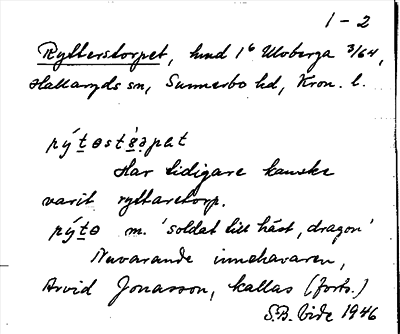 1-2
Rytterstorpet, hmd 1⁶ Uloberga 3/64,
Hallaryds sn, Sunnerbo hd, Kron. l.
Har tidigare kanske
varit ryttaretorp.
m. 'soldat till häst, dragon'
Nuvarande innehavaren,
Arvid Jonasson, kallas (forts.)
S.B. Vide 1946